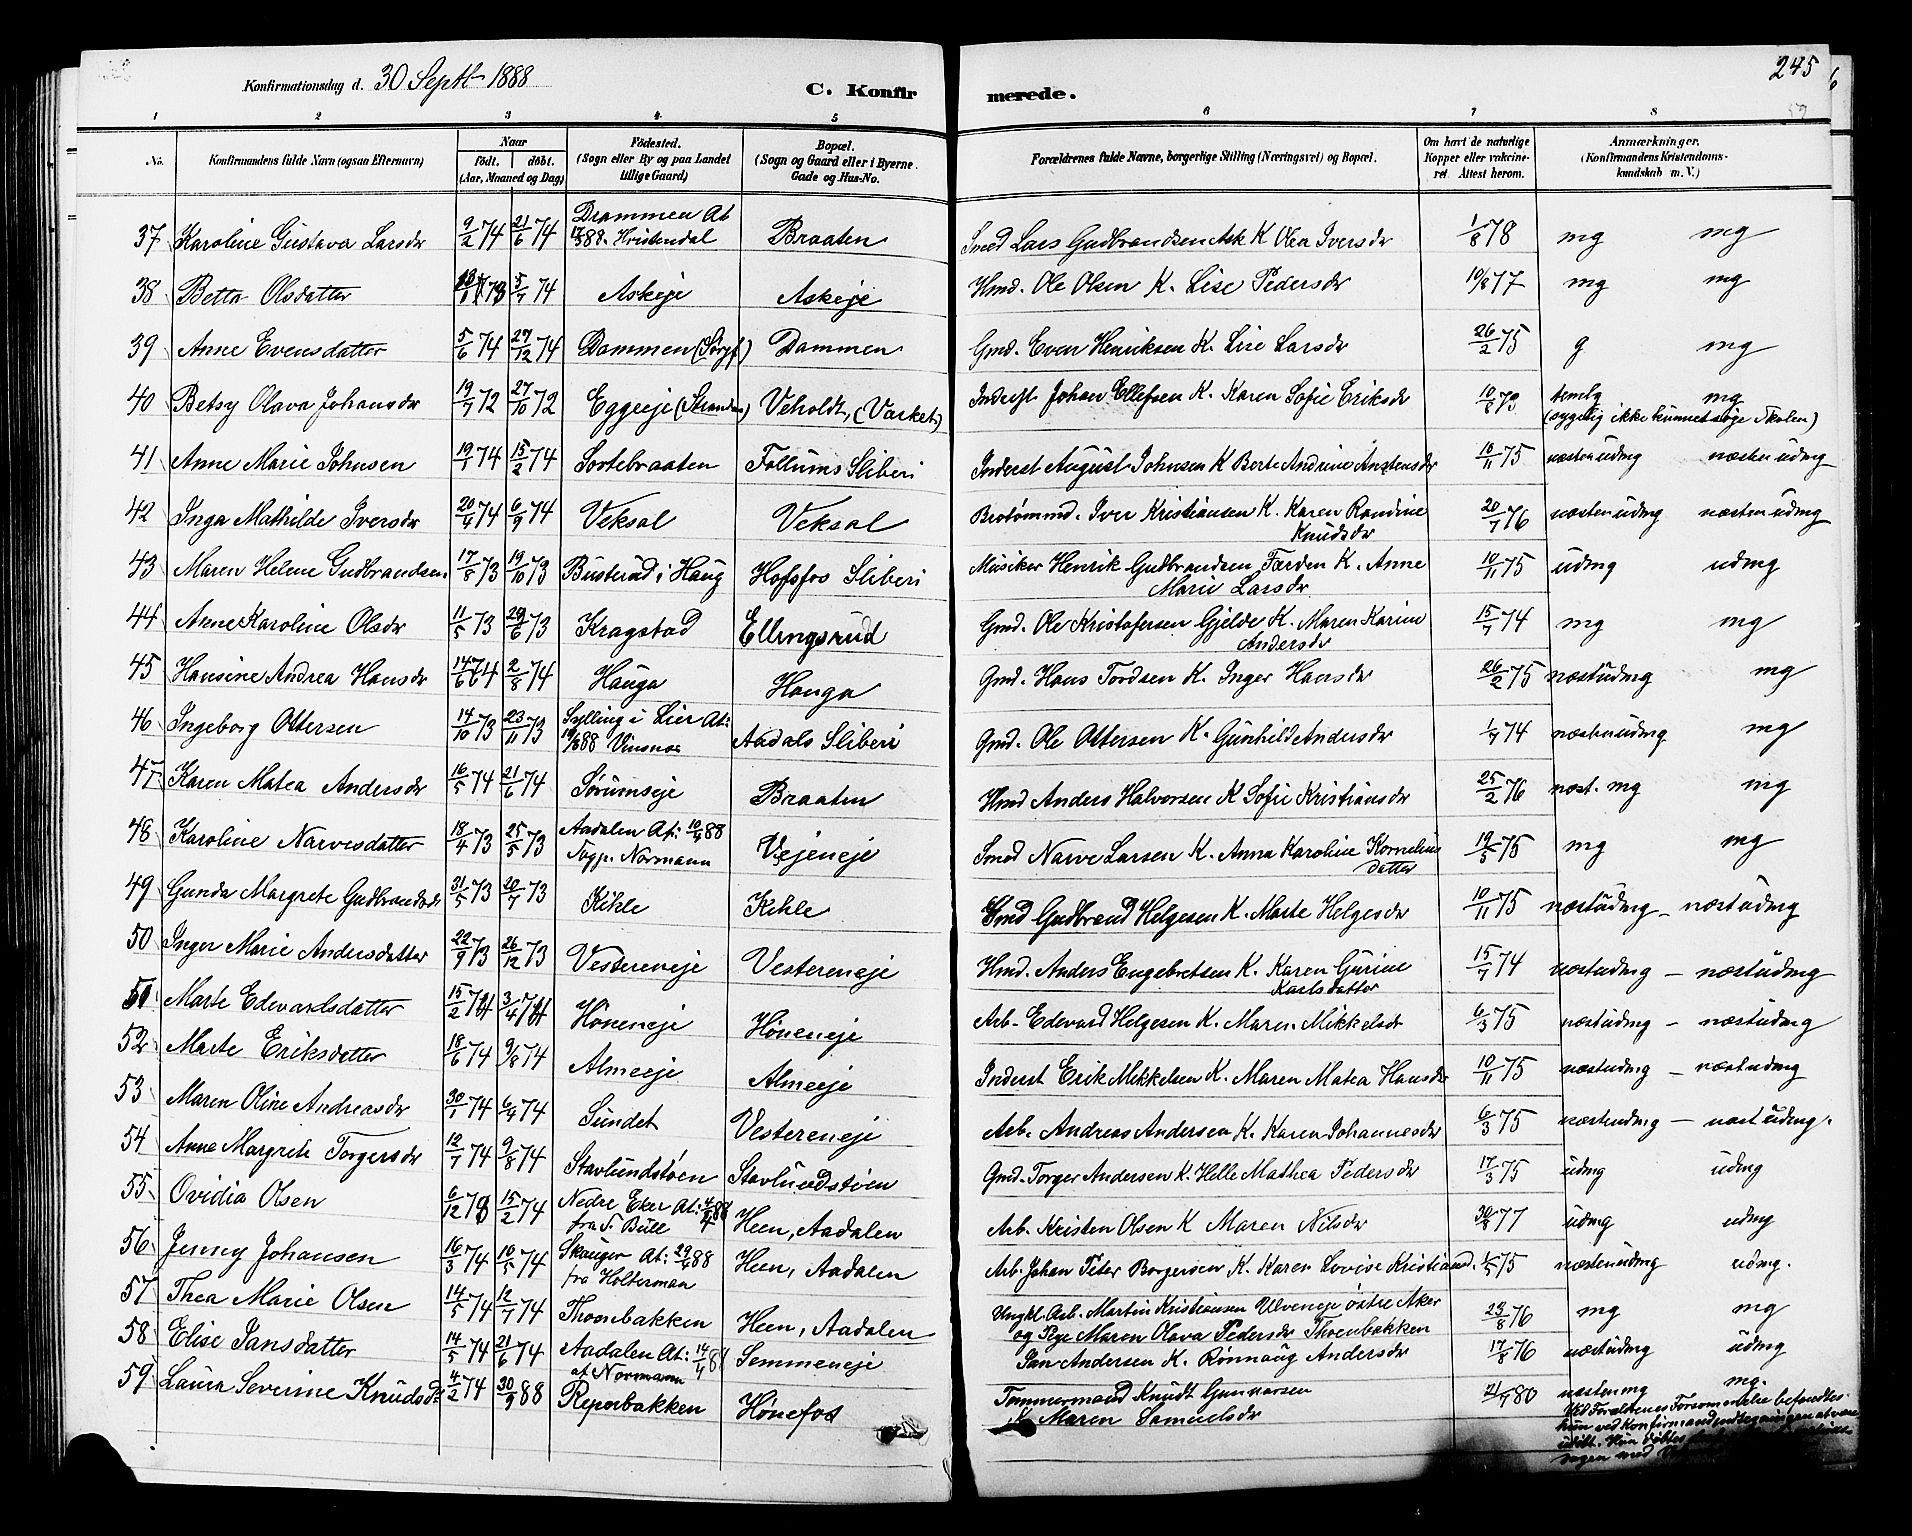 245
Konfirmationsdag d. 30 Septb 1888
C. Konfir
merede.
1 2 3 4 5 6 7 8
No. Konfirmandens fulde Navn (ogsaa Efternavn) Naar födt. döbt. (Aar, Maaned og Dag) Födested. (Sogn eller By og paa Landet tillige Gaard) Bopæl. (Sogn og Gaard eller i Byerne Gade og Hus-No. Forældrenes fulde Navne, borgerlige Stilling (Næringsvei) og Bopæl. Om havt de naturlige Kopper eller vakcineret. Attest herom. Anmærkninger. (Konfirmandens Kristendomskundskab m. V.)
37 Karoline Gustava Larsdr 9/2 74 21/6 74 Drammen At 17/3 88. Kristendal Braaten Smed Lars Gudbrandsen Ask K Olea Iversdr 1/8 78 mg mg
38 Betta Olsdatter 73 5/7 74 Askeje Askeje Hmd. Ole Olsen K. Lise Pedersdr 10/8 77 mg mg
39 Anne Evensdatter 5/6 74 27/12 74 Dammen (Sørgf) Dammen Gmd. Even Henriksen K. Lise Larsdr 26/2 75 g mg
40 Betsy Olava Johansdr 19/7 72 27/10 72 Eggeeje (Stranden) Veholdt, (Varket) Inderst Johan Ellefsen K. Karen Sofie Eriksdr 10/8 73 temlg mg
(sygelig ikke kunnet søge Skolen)
41 Anne Marie Johnsen 19/1 74 15/2 74 Sortebraaten Follums Sliberi Inderst August Johnsen K Berte Andrine Anstensdr 10/11 75 næsten udmg næsten udmg
42 Inga Mathilde Iversdr 20/4 74 6/9 74 Veksal Veksal Brotømmd. Iver Kristiansen K. Karen Randine Knudsdr 20/7 76 næsten udmg næsten udmg
43 Maren Helene Gudbrandsen 17/8 73 19/10 73 Busterud i Haug Hofsfos Sliberi Musiker Henrik Gudbrandsen Færden K. Anne Marie Larsdr 10/11 75 udmg udmg
44 Anne Karoline Olsdr 11/5 73 29/6 73 Kragstad Ellingsrud Gmd. Ole Kristofersen Gjelde K. Maren Karine Andersdr 15/7 74 mg mg
45 Hansine Andrea Hansdr 14/6 74 2/8 74 Hauga Hauga Gmd. Hans Tordsen K. Inger Hansdr 26/2 75 næstudmg mg
46 Ingeborg Ottersen 14/10 73 23/11 73 Sylling i Lier At: 88 Vinsnes Aadals Sliberi Gmd. Ole Ottersen K. Gunhild Andersdr 1/7 74 næsten udmg mg
47 Karen Matea Andersdr 16/5 74 21/6 74 Sørumseje Braaten Hmd Anders Halvorsen K Sofie Kristiansdr 25/2 76 næst. mg mg
48 Karoline Narvesdatter 18/4 73 25/5 73 Aadalen At: 10/4 88 Sogp. Normann Vejeneje Smed Narve Larsen K. Anna Karoline Kornelius datter 19/5 75 mg mg
49 Gunda Margrete Gudbrandsdr 31/5 73 20/7 73 Kihle Kihle Gmd Gudbrand Helgesen K. Marte Helgesdr 10/11 75 næstudmg – næstudmg
50 Inger Marie Andersdatter 22/9 73 26/12 73 Vestereneje Vestereneje Hmd. Anders Engebretsen K. Karen Gurine Karlsdatter 15/7 74 næstudmg – næstudmg
51 Marte Edevardsdatter 15/2 74 3/4 74 Høneneje Høneneje Arb. Edevard Helgesen K. Maren Mikkelsdr 6/3 75 næstudmg – næstudmg
52 Marte Eriksdatter 18/6 74 9/8 74 Almeeje Almeeje Inderst Erik Mikkelsen K. Maren Matea Hansdr 10/11 75 næstudmg – næstudmg
53 Maren Oline Andreasdr 30/1 74 6/4 74 Sundet Vestereneje Arb. Andreas Andersen K. Karen Johannesdr 6/3 75 næstudmg – næst udmg.
54 Anne Margrete Torgersdr 12/7 74 9/8 74 Stavlundstøen Stavlundstøen Gmd. Torger Andersen K. Helle Mathea Pedersdr 17/3 75 udmg udmg
55 Ovidia Olsen 6/12 73 15/2 74 Nedre Eker At: 88 fra S. Bull Heen, Aadalen Arb. Kristen Olsen K Maren Nilsdr 30/8 77 udmg udmg
56 Jenny Johansen 16/3 74 10/5 74 Skauger At: 88 fra Holterman Heen, Aadalen Arb. Johan Peter Borgersen K. Karen Lovise Kristiansd. 1/5 75 næstenudmg udmg.
57 Thea Marie Olsen 14/5 74 12/7 74 Thoenbakken Heen, Aadalen Ungkl. Arb. Martin Kristiansen Ulveneje østre Aker og Pige Maren Olava Pedersdr Thoenbakken 23/8 76 mg mg
58 Elise Jansdatter 14/5 74 21/6 74 Aadalen At: 14/4 88 af Normann Semmeneje Jan Andersen K. Rønnaug Andersdr 17/8 76 næstudmg udmg
59 Laura Severine Knudsdr 4/2 74 30/9 88 Reperbakken Hønefos Tømmermand Knudt Gunnarsen K Maren Samuelsdr 21/7 80 næstenmg mg.
Ved Forældrenes Forsømmelse befandtes
hun ved Konfirmandindtegningen at være
udøbt. Hun døbtes